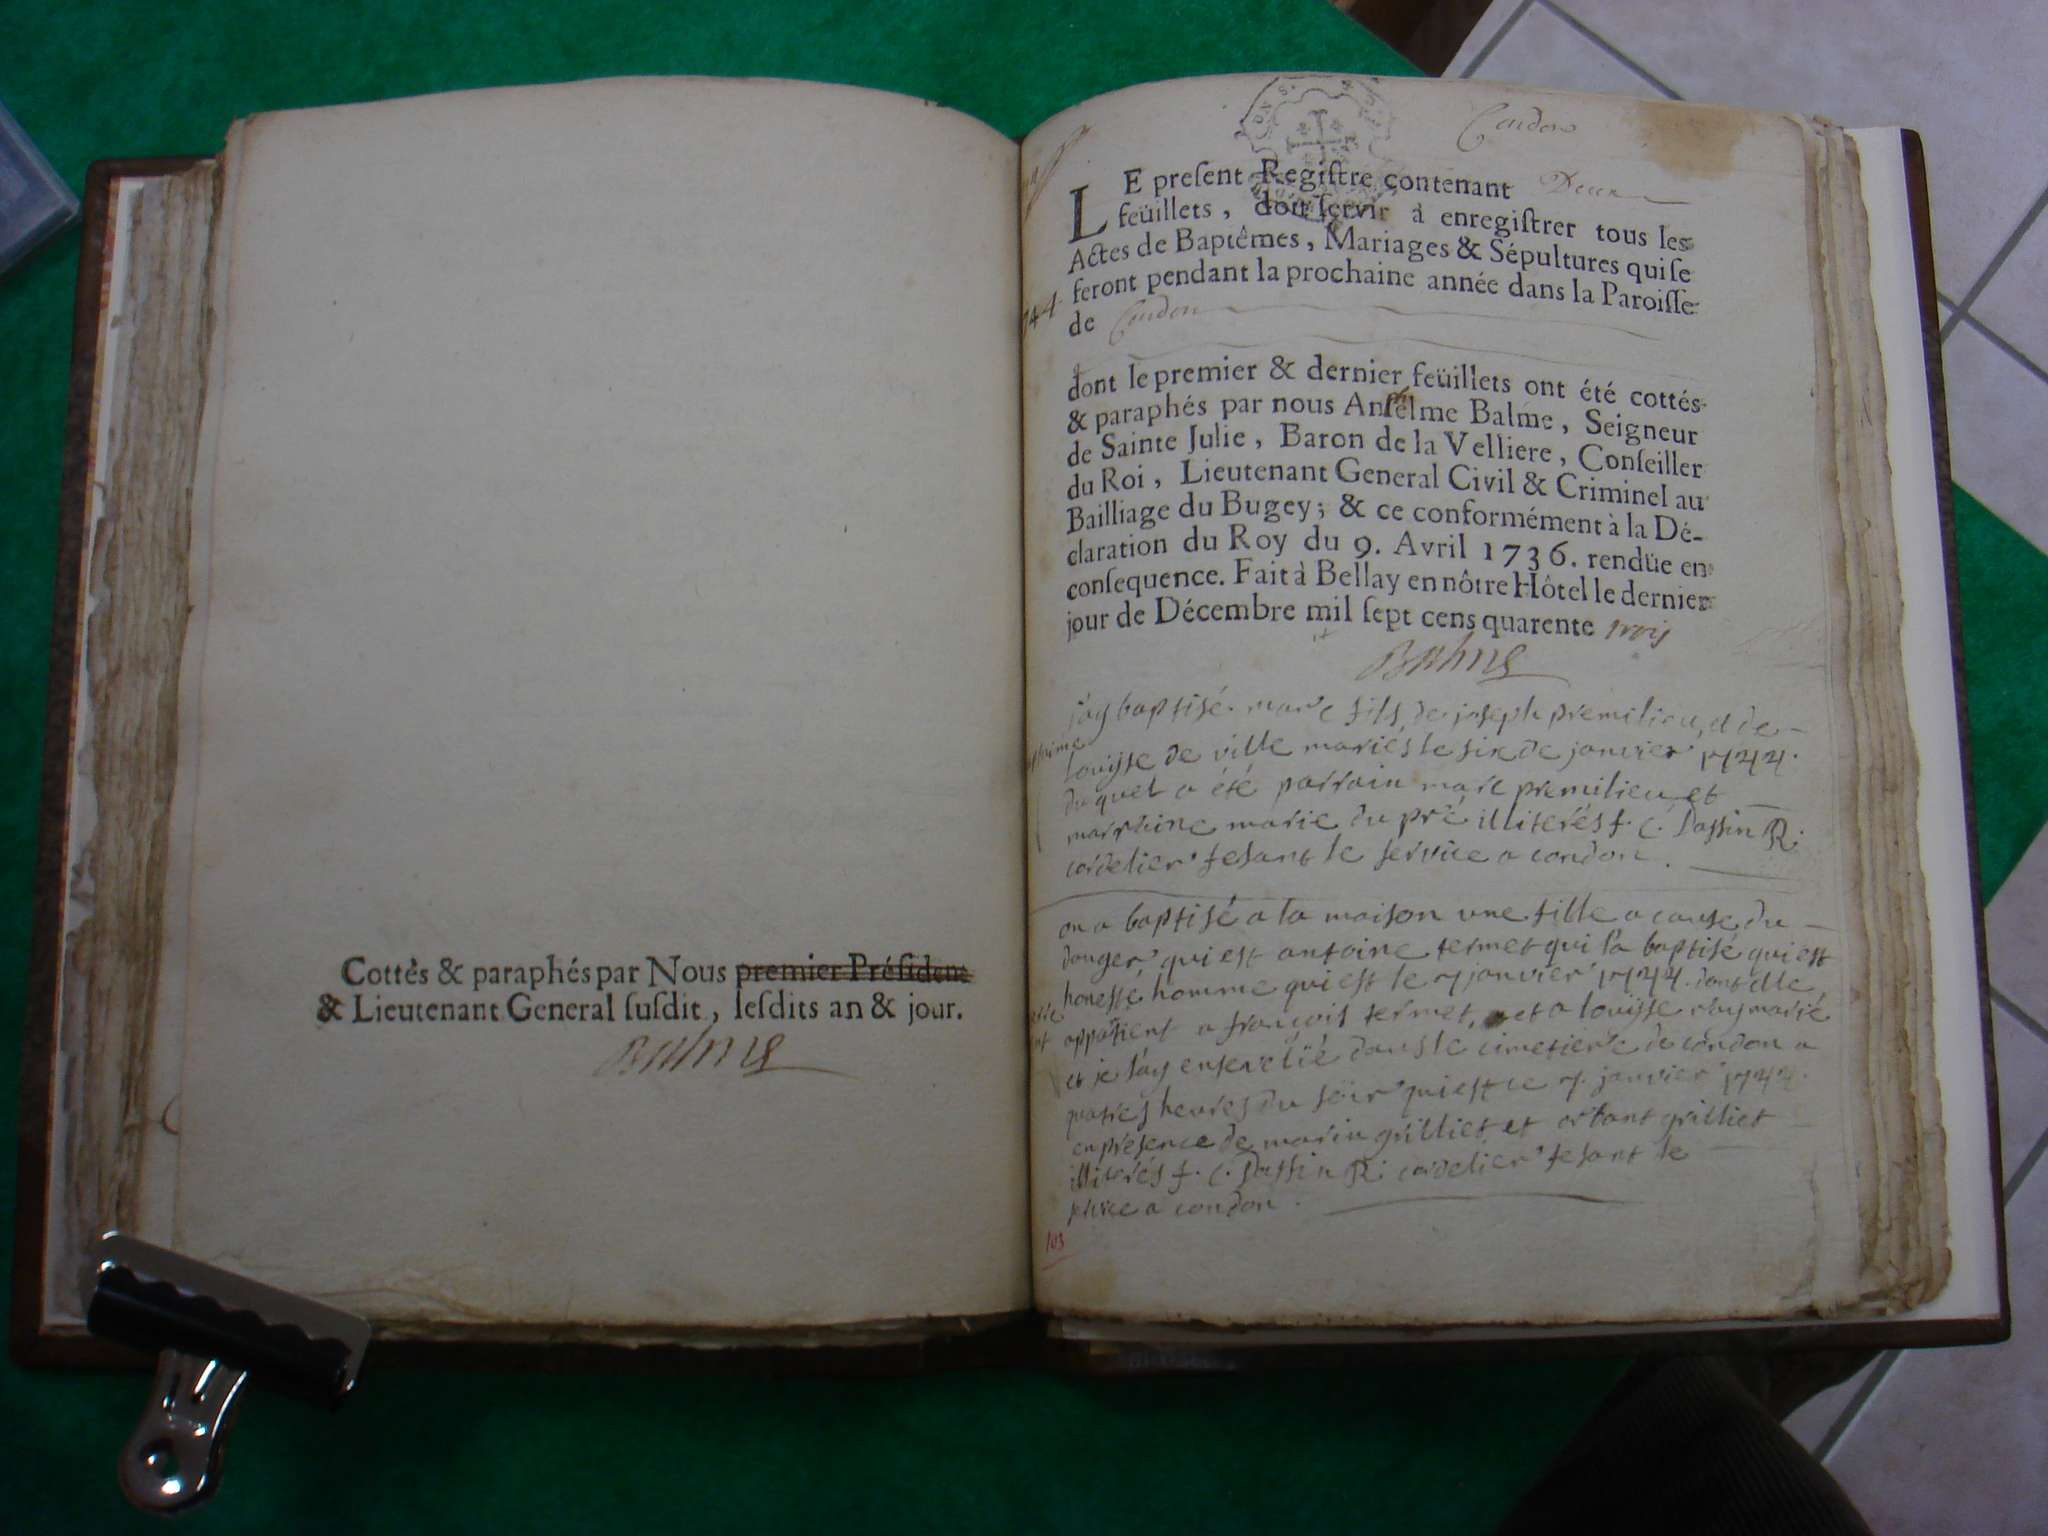 Cottés & paraphés par Nous premier Président
& Lieutenant General susdit, lesdits an & jour.
Balme
Condon
LE present Registre contenant Deux
feüillets, doit servir à enregistrer tous les
Actes de Baptêmes, Mariages & Sépultures qui se
feront pendant la prochaine année dans la Paroisse
de Condon
dont le premier & dernier feüillets ont été cottés
& paraphés par nous Anthelme Balme, Seigneur
de Sainte Julie, Baron de la Velliere, Conseiller
du Roi, Lieutenant General Civil & Criminel au
Bailliage du Bugey; & ce conformément à la Dé-
claration du Roy du 9. Avril 1736. rendüe en
consequence. Fait à Bellay en nôtre Hôtel le dernier
jour de Décembre mil sept cens quarente trois
Balme
j'ay baptisé marc fils de joseph premilieu, et de
louyse de ville mariés le six de janvier 1744.
duquel a été parrain marc premilieu et
marraine marie du pré illiterés f. c. Dassin R.
cordelier fesant le service a condon.
on a baptisé a la maison une fille a cause du
danger qui est antoine termet qui l'a baptisé qui est
honeste homme qui est le 7 janvier 1744. dont elle
appatient a françois termet, et a louyse ray marié
et je l'ay ensevelië dans le cimetiere de condon a
quatres heures du soir qui est le 7. janvier 1744.
en presence de marin grilliet et grilliet
illiterés f. c. Dassin R. cordelier fesant le
service a condon.
103